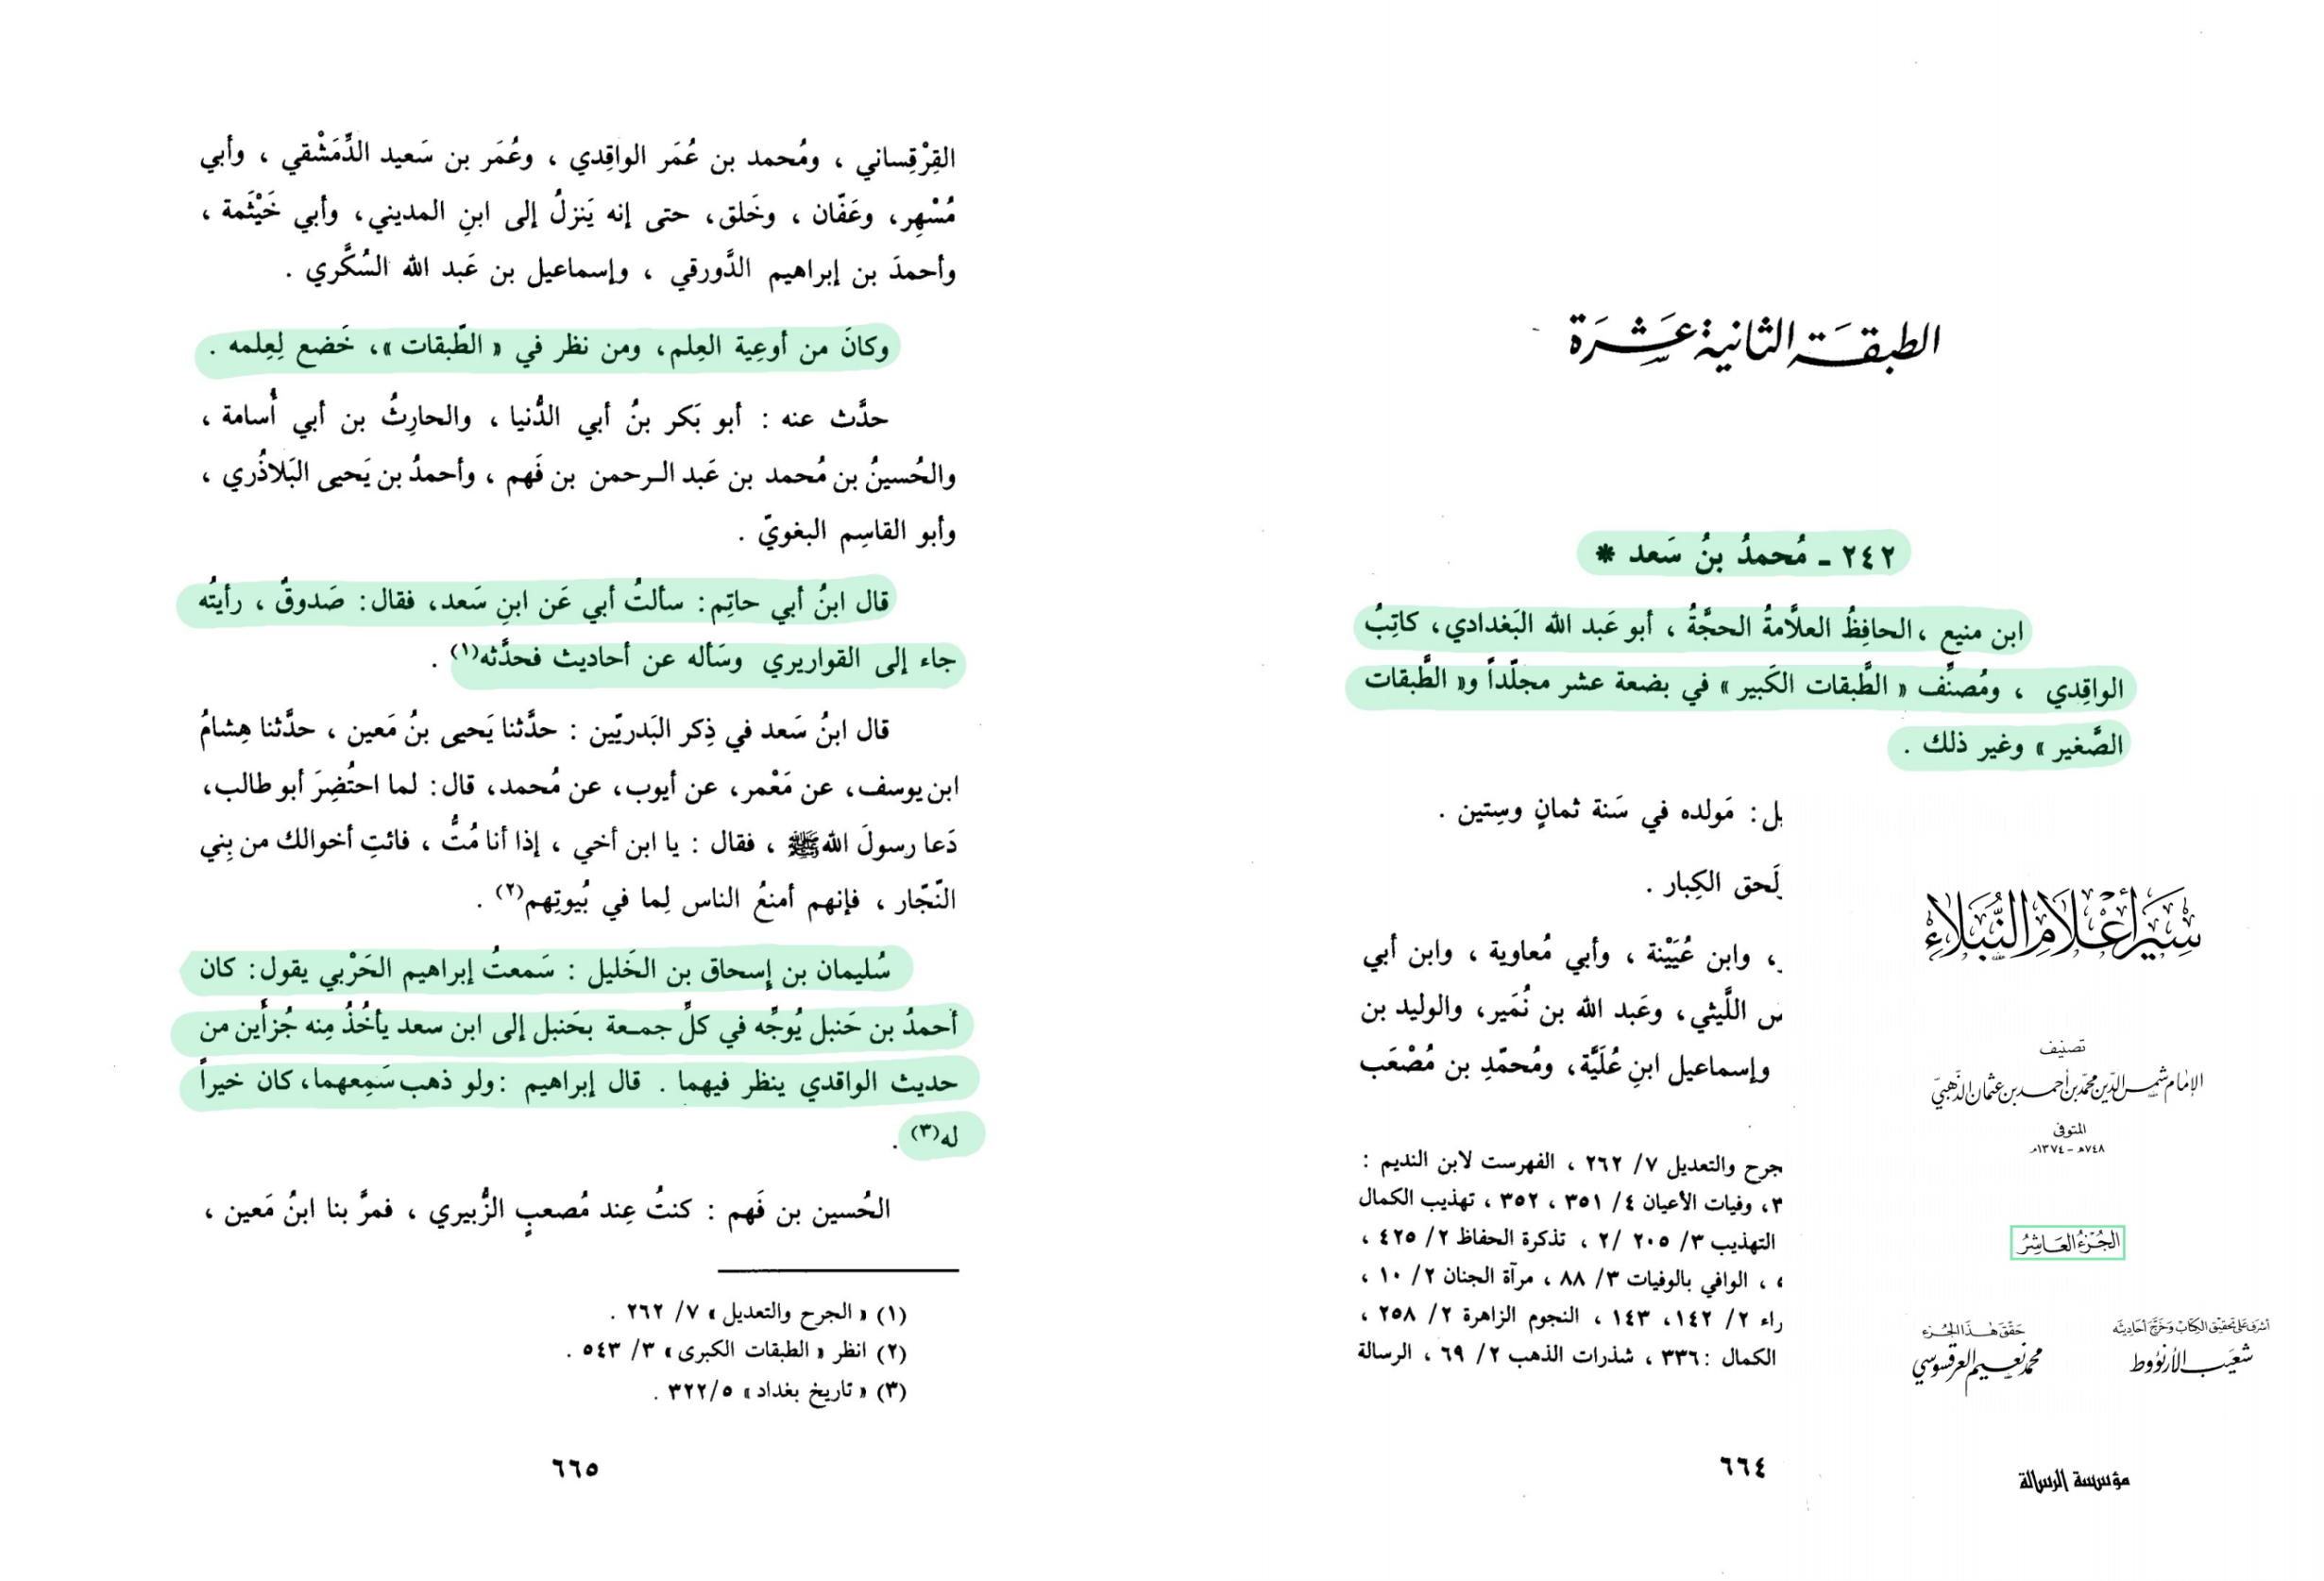 الطبقة الثانية عشرة
٢٤٢ - مُحمدُ بنُ سَعد *
ابن منيع ، الحافِظُ العلاَّمةُ الحجَّةُ ، أبو عَبد الله البَغدادي، كاتِبُ
الواقِدي ، ومُصنِّف « الطَّبقات الكَبير » في بضعة عشر مجلّداً و« الطَّبقات
الصَّغير » وغير ذلك .
مَولده في سَنة ثمانٍ وسِتين .
لَحق الكِبار .
، وابن عُيَيْنة ، وأبي مُعاوية ، وابن أبي
اللَّيثي، وعَبد الله بن نُمَير، والوليد بن
وإسماعيل ابنِ عُلَيَّة، ومُحمّدِ بن مُصْعَب
جرح والتعديل ٧/ ٢٦٢ ، الفهرست لابن النديم :
٣، وفيات الأعيان ٤/ ٣٥١ ، ٣٥٢ ، تهذيب الكمال
التهذيب ٣/ ٢٠٥ /٢ ، تذكرة الحفاظ ٢/ ٤٢٥ ،
، الوافي بالوفيات ٣/ ٨٨ ، مرآة الجنان ٢/ ١٠ ،
راء ٢/ ١٤٢، ١٤٣ ، النجوم الزاهرة ٢/ ٢٥٨ ،
الكمال : ٣٣٦ ، شذرات الذهب ٢/ ٦٩ ، الرسالة
٦٦٤
سِيَرُ أَعْلَامِ النُّبَلَاءِ
تصنيف
الإمام شمس الدّين محمّد بن أحمد بن عثمان الذّهبيّ
المتوفى
٧٤٨هـ - ١٣٧٤م
الجُزءُ العَاشِرُ
أشرف على تحقيق الكتاب وخرّج أحاديثه
شعَيب الأرنؤوط
حَقّقَ هَذا الجُزء
محمّد نعيم العرقسوسي
مؤسسة الرسالة
القِرْقِساني ، ومُحمد بن عُمَر الواقِدي ، وعُمَر بن سَعيد الدِّمَشْقي ، وأبي
مُسْهِر، وعَفّان ، وخَلق، حتى إنه يَنزلُ إلى ابنِ المديني، وأبي خَيْثَمة ،
وأحمدَ بن إبراهيم الدَّورقي ، وإسماعيل بن عَبد الله السُكَّري .
وكانَ من أوعِية العِلم، ومن نظر في « الطّبقات »، خَضع لِعِلمه .
حدَّث عنه : أبو بَكر بنُ أبي الدُّنيا ، والحارِثُ بن أبي أُسامة ،
والحُسينُ بن مُحمد بن عَبد الرحمن بن فَهم ، وأحمدُ بن يَحيى البَلاذُري ،
وأبو القاسِم البغويّ .
قال ابنُ أبي حاتِم: سألتُ أبي عَن ابنِ سَعد، فقال: صَدوقٌ ، رأيتُه
جاء إلى القواريري وسَأله عن أحاديث فحدَّثه(١) .
قال ابنُ سَعد في ذِكر البَدريّين : حدَّثنا يَحيى بنُ مَعين ، حدَّثنا هِشامُ
ابن يوسف، عن مَعْمر، عن أيوب، عن مُحمد، قال: لما احتُضِرَ أبو طالب،
دَعا رسولَ الله ﷺ ، فقال : يا ابن أخي ، إذا أنا مُتُّ ، فائتِ أخوالك من بِني
النّجّار ، فإنهم أمنعُ الناس لِما في بُيوتِهم(٢) .
سُليمان بن إِسحاق بن الخَليل : سَمعتُ إبراهيم الحَرْبي يقول: كان
أحمدُ بن حَنبل يُوجِّه في كلِّ جمعة بحَنبل إلى ابن سعد يأخُذُ مِنه جُزأَين من
حديث الواقدي ينظر فيهما . قال إبراهيم :ولو ذهب سَمِعهما، كان خيراً
له(٣) .
الحُسين بن فَهم : كنتُ عِند مُصعبٍ الزُّبيري ، فمرَّ بنا ابنُ مَعين ،
(١) « الجرح والتعديل » ٧/ ٢٦٢ .
(٢) انظر « الطبقات الكبرى » ٣/ ٥٤٣ .
(٣) « تاريخ بغداد » ٥/ ٣٢٢ .
٦٦٥